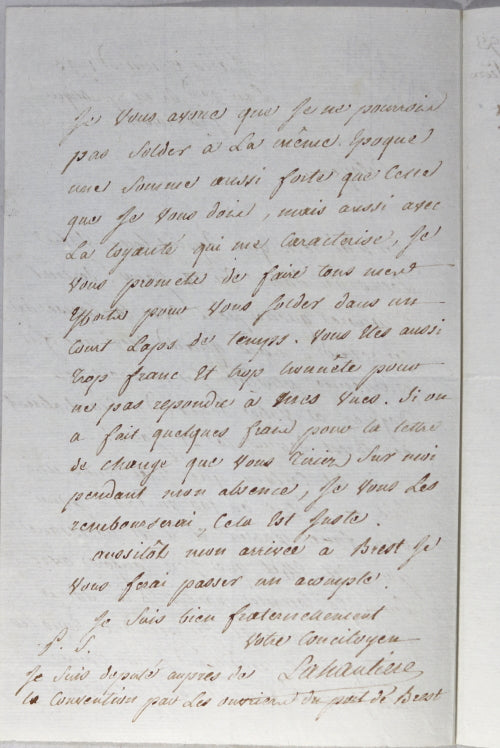 Je vous avoue que je ne pourrois
pas solder à la même Epoque
une somme aussi forte que Celle
que Je vous dois, mais aussi avec
La Loyauté qui me Caracterise, Je
vous promets de faire tous mes
Efforts pour vous solder dans un
Court Laps de temps. vous Etes aussi
trop franc Et trop honnête pour
ne pas repondre à mes vues. Si on
a fait quelques frais pour la lettre
de change que vous tiriez sur moi
pendant mon absence, Je vous Les
rembourserai, Cela Est Juste.
aussitôt mon arrivée à Brest Je
vous ferai passer un acompte.
Je suis bien fraternellement
votre Concitoyen
P. S.
Je suis deputé auprès de
La Convention par Les ouvriers du port de Brest